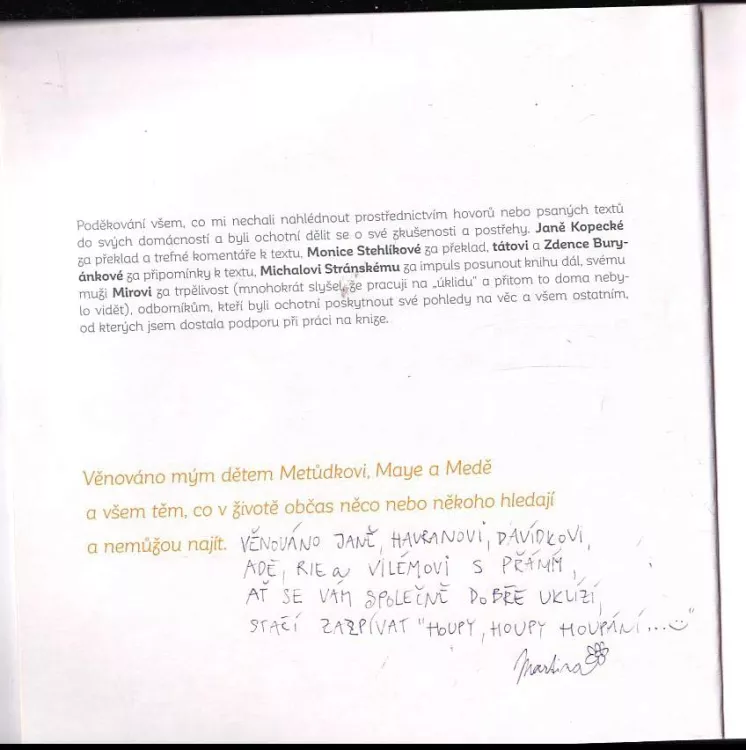 Poděkování všem, co mi nechali nahlédnout prostřednictvím hovorů nebo psaných textů
do svých domácností a byli ochotní dělit se o své zkušenosti a postřehy. Janě Kopecké
za překlad a trefné komentáře k textu, Monice Stehlíkové za překlad, tátovi a Zdence Bury-
ánkové za připomínky k textu, Michalovi Stránskému za impuls posunout knihu dál, svému
muži Mirovi za trpělivost (mnohokrát slyšel, že pracuji na „úklidu“ a přitom to doma neby-
lo vidět), odborníkům, kteří byli ochotní poskytnout své pohledy na věc a všem ostatním,
od kterých jsem dostala podporu při práci na knize.
Věnováno mým dětem Metůdkovi, Maye a Medě
a všem těm, co v životě občas něco nebo někoho hledají
a nemůžou najít. VĚNOVÁNO JANĚ, HAVRANOVI, DAVÍDKOVI,
ADĚ, RIE a VILÉMOVI S PŘÁNÍM,
AŤ SE VÁM SPOLEČNĚ DOBŘE UKLÍZÍ,
STAČÍ ZAZPÍVAT "HOUPY, HOUPY HOUPÁNÍ...☺"
Martina